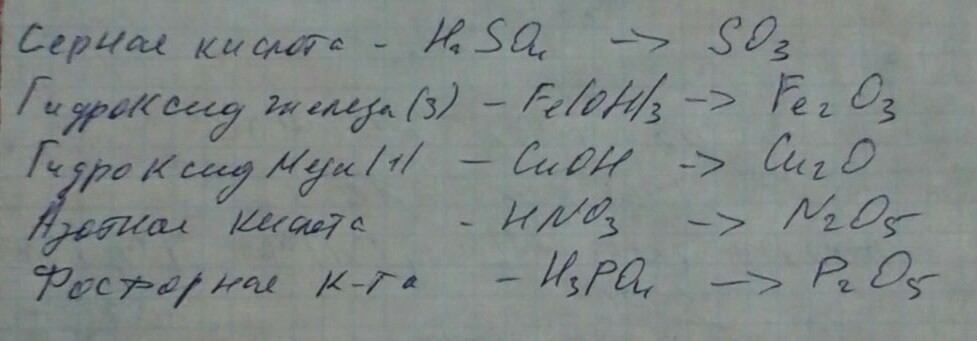 Серная кислота - H₂SO₄ -> SO₃
Гидроксид железа (3) - Fe(OH)₃ -> Fe₂O₃
Гидроксид меди (1) - CuOH -> Cu₂O
Азотная кислота - HNO₃ -> N₂O₅
Фосфорная к-та - H₃PO₄ -> P₂O₅